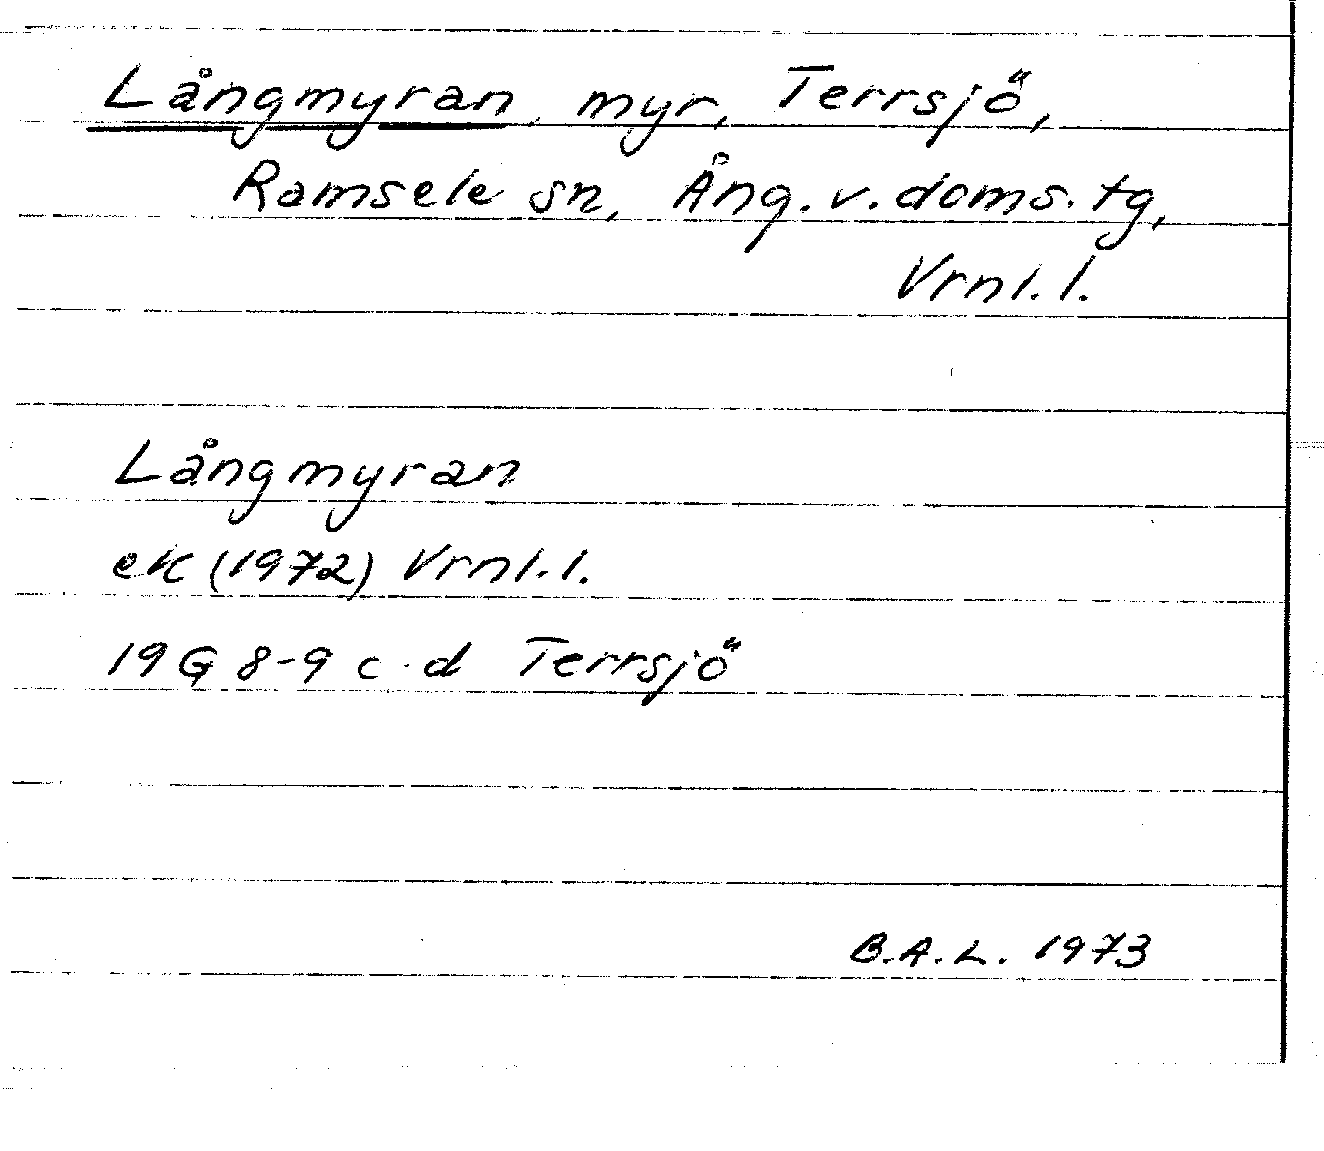 Långmyran, myr, Terrsjö,
Ramsele sn, Ång. v. doms. tg,
Vrnl. l.
Långmyran
ek (1972) Vrnl. l.
19 G 8-9 c-d Terrsjö
B.A.L. 1973